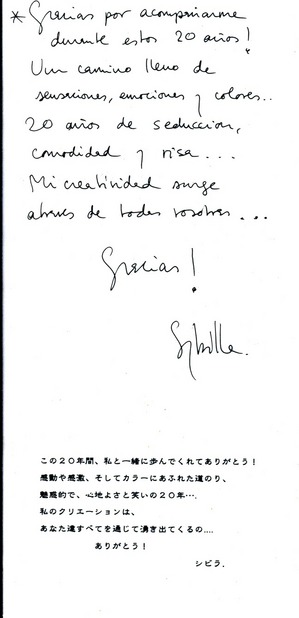 * Gracias por acompañarme
durante estos 20 años!
Un camino lleno de
sensaciones, emociones y colores..
20 años de seduccion,
comodidad y risa...
Mi creatividad surge
através de todas vosotras...
Gracias!
Sybilla.
この２０年間、私と一緒に歩んでくれてありがとう！
感動や感激、そしてカラーにあふれた道のり、
魅惑的で、心地よさと笑いの２０年….
私のクリエーションは、
あなた達すべてを通じて湧き出てくるの....
ありがとう！
シビラ.